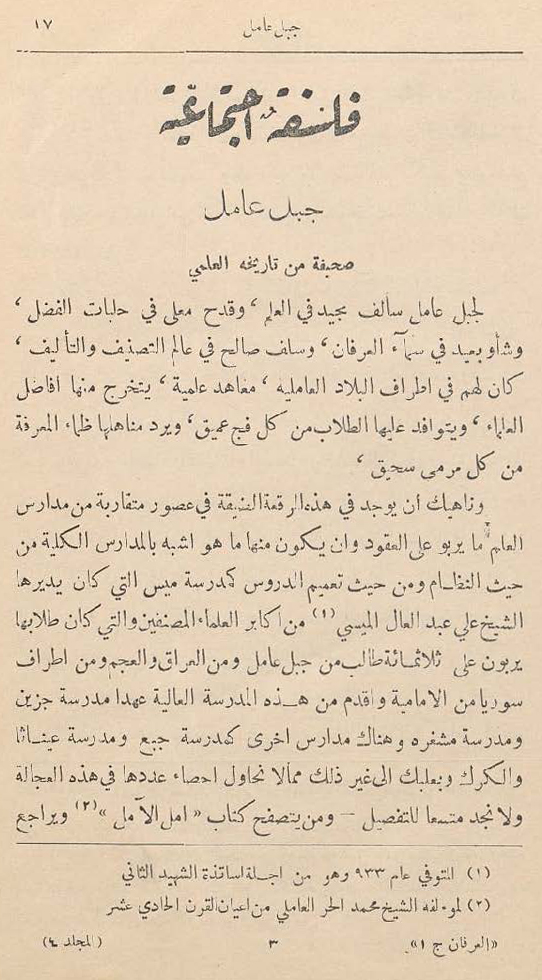 ١٧
جبل عامل
فلسفة اجتماعية
جبل عامل
صحيفة من تاريخه العلمي
لجبل عامل سالف مجيد في العلم ، وقدح معلى في حلبات الفضل ،
وشأو بعيد في سمآء العرفان ، وسلف صالح في عالم التصنيف والتأليف ،
كان لهم في اطراف البلاد العامليه ، معاهد علمية ، يتخرج منها افاضل
العلماء ، ويتوافد عليها الطلاب من كل فج عميق ، ويرد مناهلها ظماء المعرفة
من كل مرمى سحيق ،
وناهيك ان يوجد في هذه الرقعة الضيقة في عصور متقاربة من مدارس
العلم ما يربو على العقود وان يكون منها ما هو اشبه بالمدارس الكلية من
حيث النظام ومن حيث تعميم الدروس كمدرسة ميس التي كان يديرها
الشيخ علي عبد العال الميسي (١) من اكابر العلماء المصنفين والتي كان طلابها
يربون على ثلاثمائة طالب من جبل عامل ومن العراق والعجم ومن اطراف
سوريا من الامامية واقدم من هذه المدرسة العالية عهدا مدرسة جزين
ومدرسة مشغره وهناك مدارس اخرى كمدرسة جبع ومدرسة عيناثا
والكرك وبعلبك الى غير ذلك ممالا نحاول احصاء عددها في هذه العجالة
ولا نجد متسعا للتفصيل — ومن يتصفح كتاب « امل الآمل »(٢) ويراجع
(١) المتوفي عام ٩٣٣ وهو من اجلة اساتذة الشهيد الثاني
(٢) لموءلفه الشيخ محمد الحر العاملي من اعيان القرن الحادي عشر
«العرفان ج ١» ٣ (المجلد ٤)